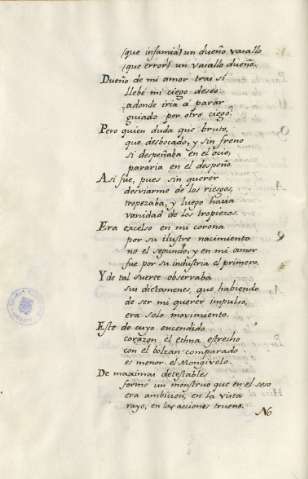 (que infamia!) un dueño vasallo
(que error!) un vasallo dueño.
Dueño de mi amor tras sí
llebó mi ciego deseo
adonde iria à parar
guiado por otro ciego.
Pero quien duda que bruto,
que desbocado, y sin freno
si despeñaba en el ocio
pararia en el despeño.
Asi fue, pues sin querer
desviarme de los riesgos,
tropezaba, y luego hacia
vanidad de los tropiezos.
Era excelso en mi corona
por su ilustre nacimiento
no el segundo, y en mi amor
fue por su industria el primero.
Y de tal suerte observaba
sus dictamenes, que habiendo
de ser mi querer impulso,
era solo movimiento.
Este de cuyo encendido
corazon el ethna estrecho
con el bolcan comparado
es menor el Mongivelo.
De maximas detestables
formó un monstruo que en el seso
era ambicion, en la vista
rayo, en las acciones trueno.
No